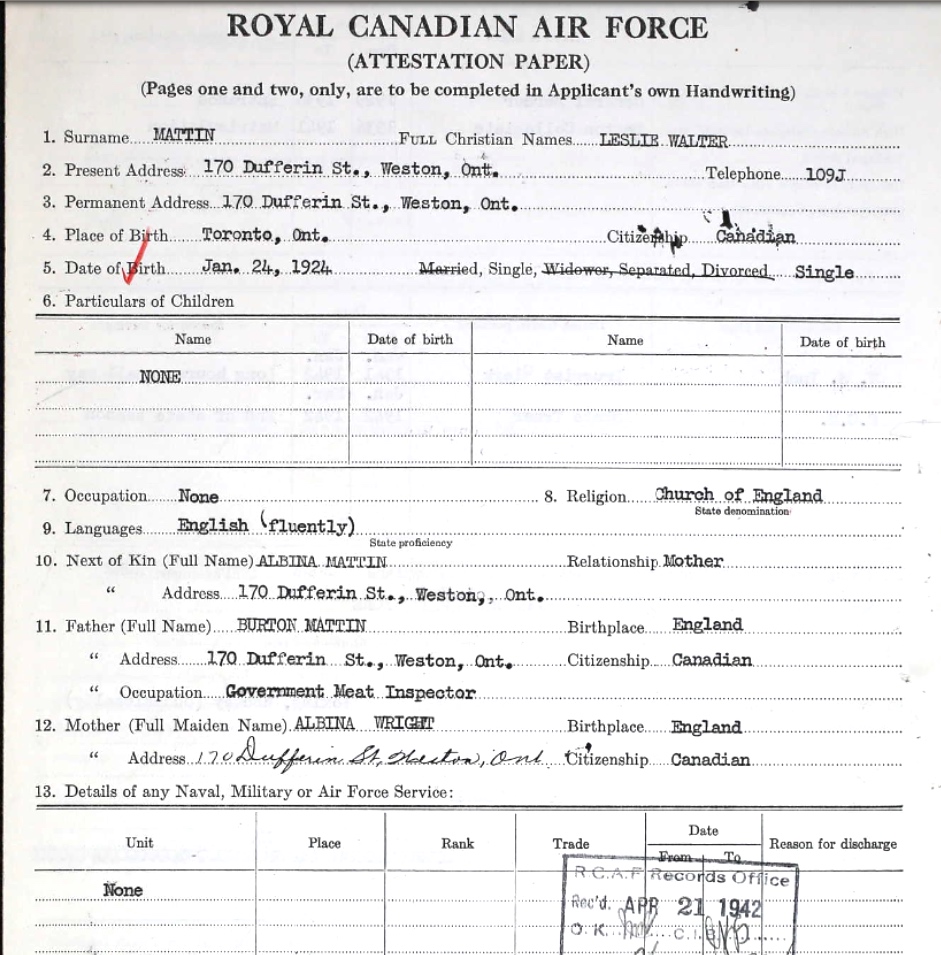 ROYAL CANADIAN AIR FORCE
(ATTESTATION PAPER)
(Pages one and two, only, are to be completed in Applicant's own Handwriting)
1. Surname MATTIN Full Christian Names LESLIE WALTER
2. Present Address 170 Dufferin St., Weston, Ont. Telephone 109J
3. Permanent Address 170 Dufferin St., Weston, Ont.
4. Place of Birth Toronto, Ont. Citizenship Canadian
5. Date of Birth Jan. 24, 1924 Married, Single, Widower, Separated, Divorced Single
6. Particulars of Children
Name Date of birth Name Date of birth
NONE
7. Occupation None 8. Religion Church of England
State denomination
9. Languages English (fluently)
State proficiency
10. Next of Kin (Full Name) ALBINA MATTIN Relationship Mother
" Address 170 Dufferin St., Weston, Ont.
11. Father (Full Name) BURTON MATTIN Birthplace England
" Address 170 Dufferin St., Weston, Ont. Citizenship Canadian
" Occupation Government Meat Inspector
12. Mother (Full Maiden Name) ALBINA WRIGHT Birthplace England
" Address 170 Dufferin St, Weston, Ont Citizenship Canadian
13. Details of any Naval, Military or Air Force Service:
Unit Place Rank Trade Date Reason for discharge
From To
None
R.C.A.F Records Office
Rec'd. APR 21 1942
O. K. C.I.B.